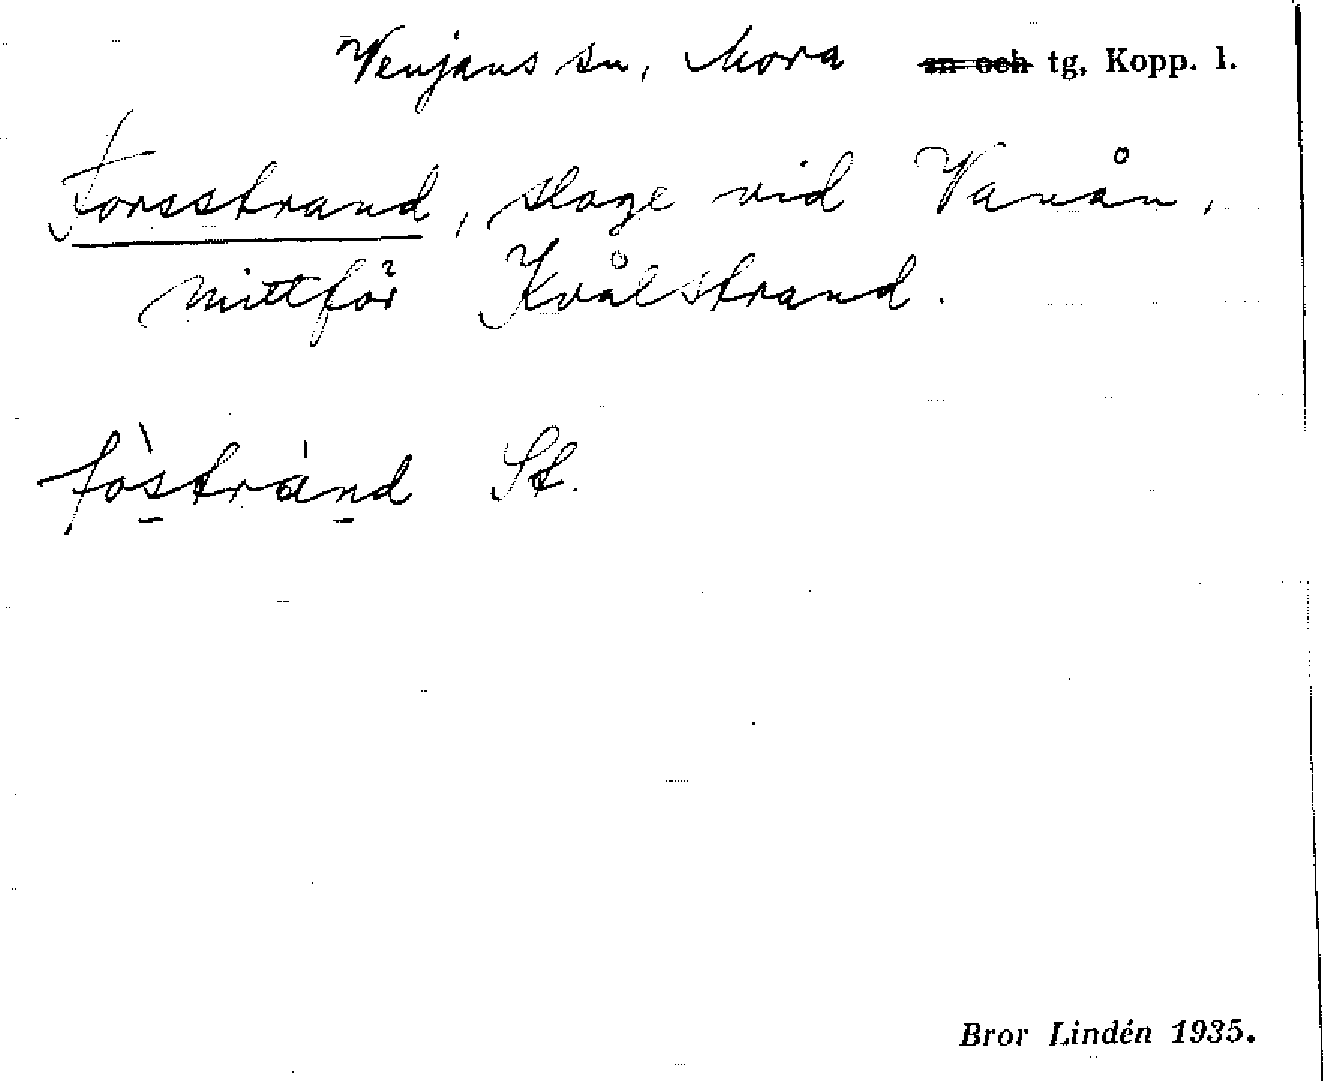 Venjans sn, Mora ~~sn och~~ tg, Kopp. l.
Forsstrand, sloge vid Vanån,
mittför Kvålstrand.
fòstránd St.
Bror Lindén 1935.